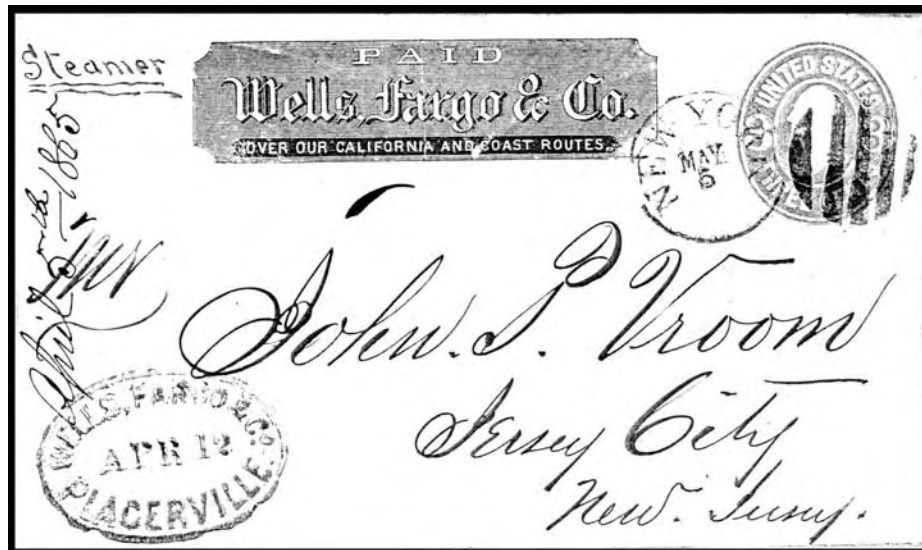 Steamer
April
1865
PAID
Wells, Fargo & Co.
OVER OUR CALIFORNIA AND COAST ROUTES.
NEW YO
MAY
6
UNITED STATES
3
3
John. P. Vroom
Jersey City
New. Jersey.
WELLS, FARGO & CO
APR 12
PLACERVILLE